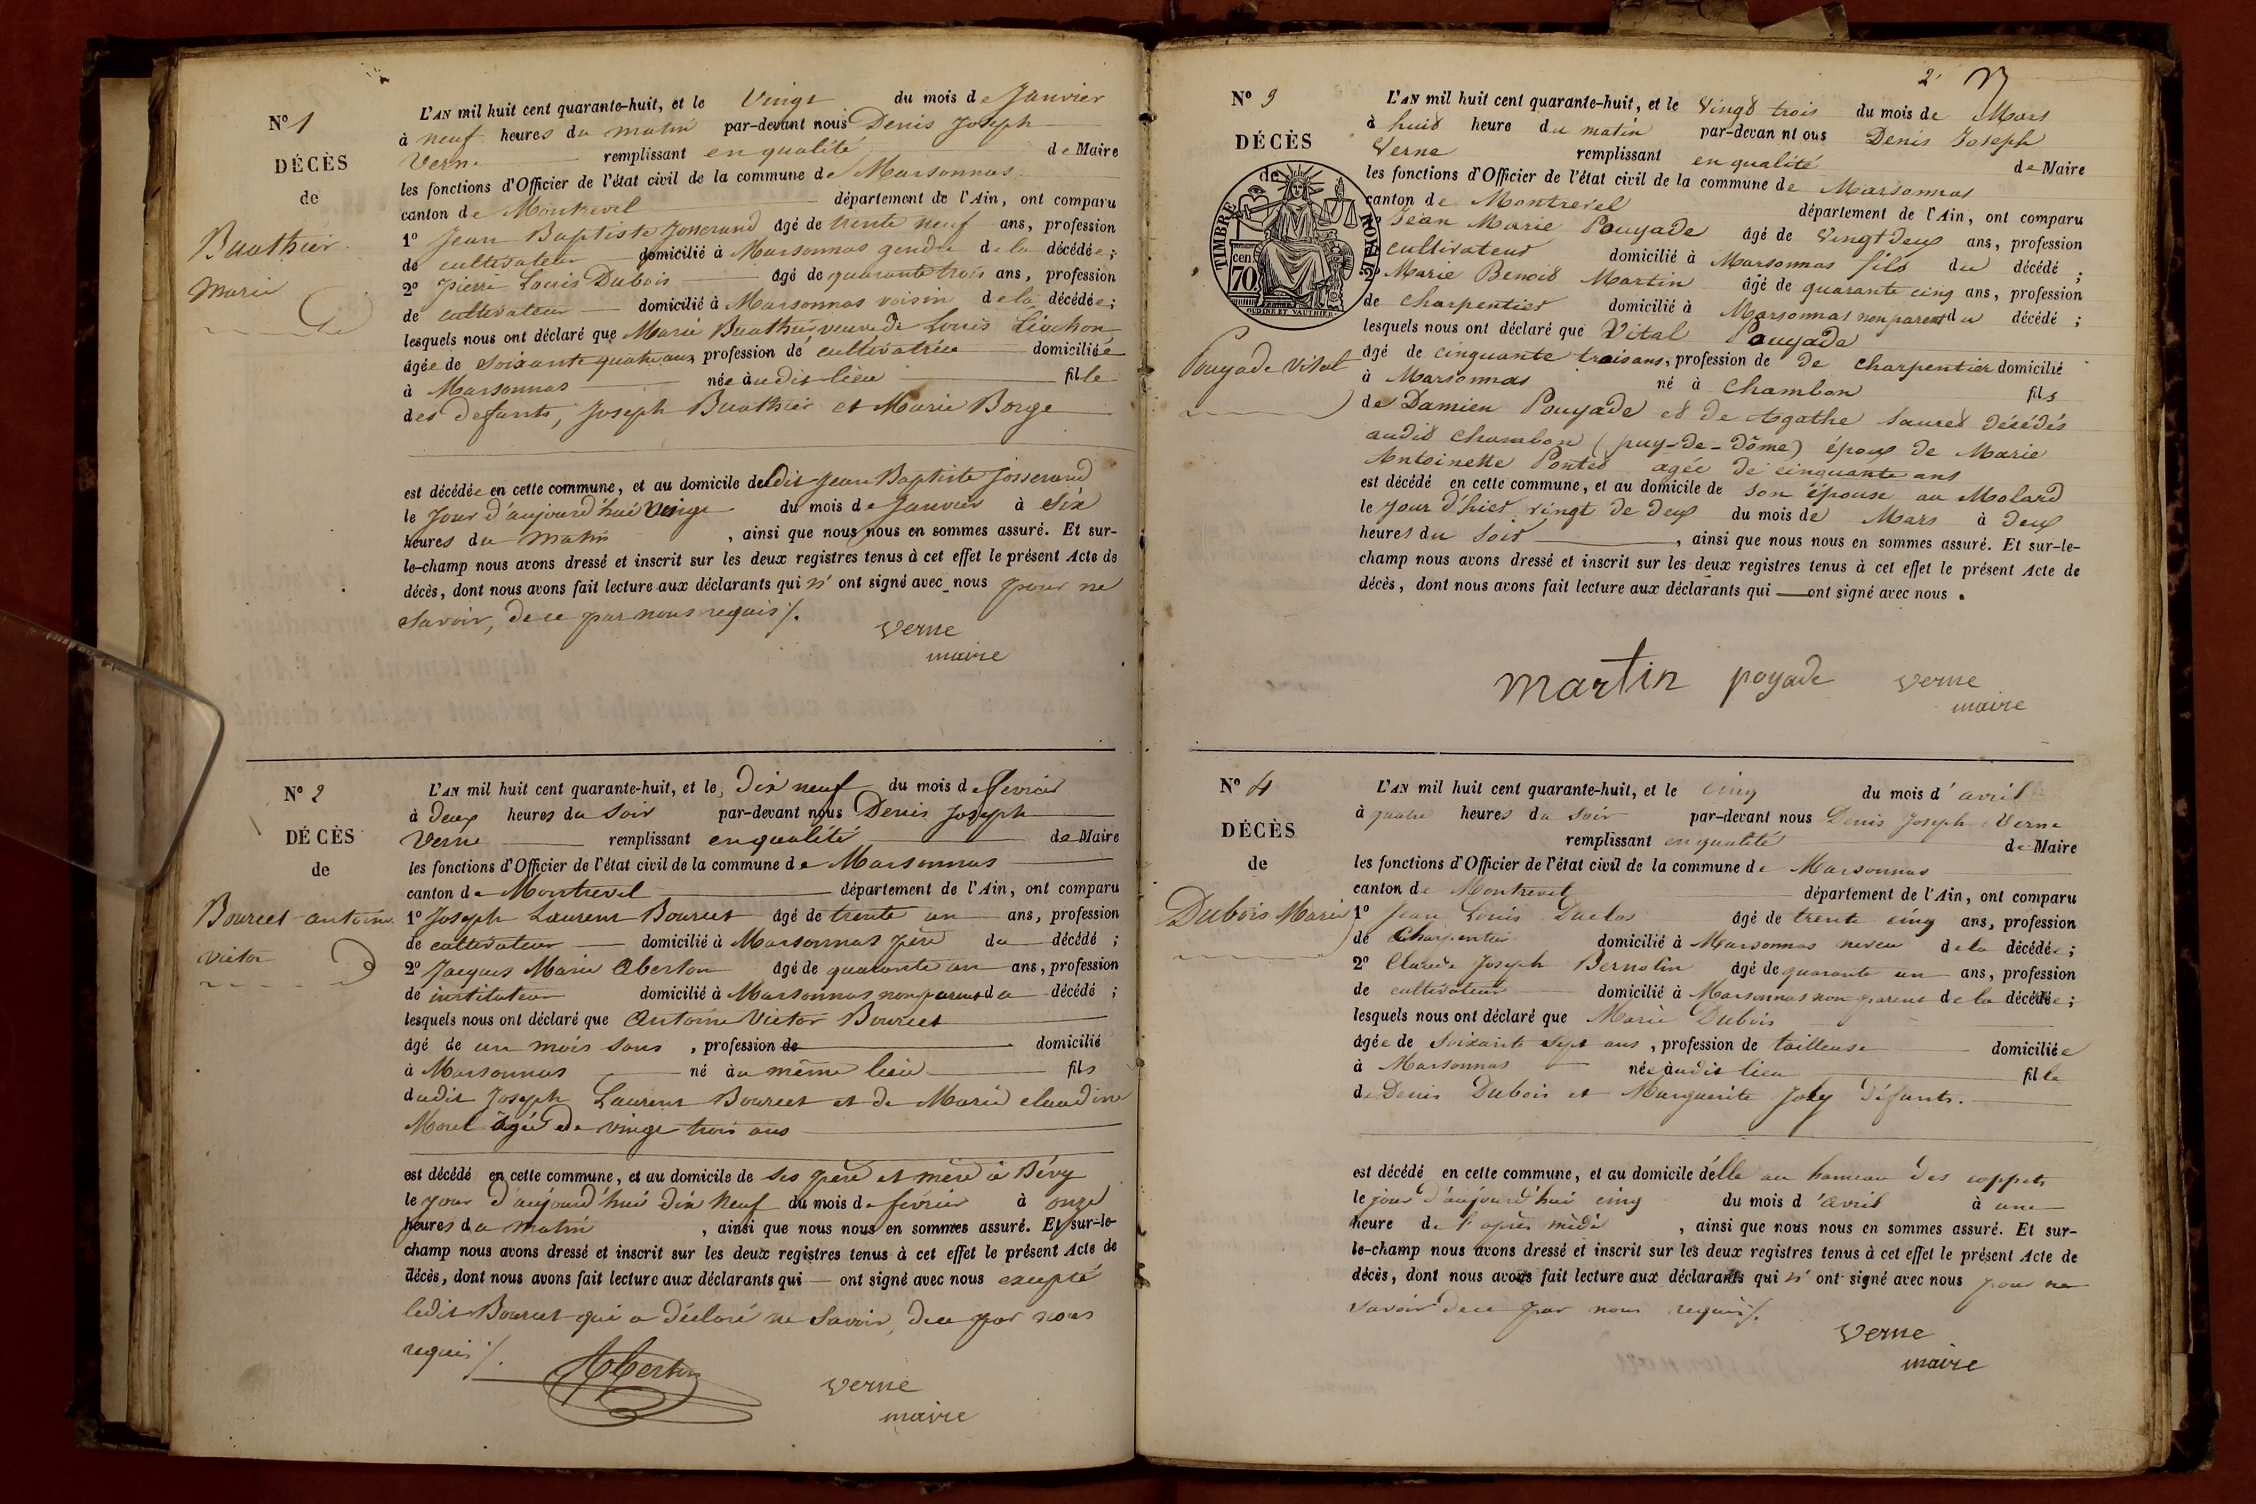 N° 1
DÉCÈS
de
Buathier
Marie
L'AN mil huit cent quarante-huit, et le Vingt du mois de Janvier
à neuf heures du matin par-devant nous Denis Joseph
Verne remplissant en qualité de Maire
les fonctions d'Officier de l'état civil de la commune de Marsonnas
canton de Montrevel département de l'Ain, ont comparu
1° Jean Baptiste Josserand âgé de trente neuf ans, profession
de cultivateur domicilié à Marsonnas gendre de la décédée ;
2° Pierre Louis Dubois âgé de quarante trois ans, profession
de cultivateur domicilié à Marsonnas voisin de la décédée ;
lesquels nous ont déclaré que Marie Buathier veuve de Louis
âgée de soixante quatre ans profession de cultivatrice domiciliée
à Marsonnas née audit lieu fille
des defunts, Joseph Buathier et Marie Borge
est décédée en cette commune, et au domicile dudit Jean Baptiste Josserand
le jour d'aujourd'hui vingt du mois de Janvier à Six
heures du matin , ainsi que nous nous en sommes assuré. Et sur-
le-champ nous avons dressé et inscrit sur les deux registres tenus à cet effet le présent Acte de
décès, dont nous avons fait lecture aux déclarants qui n' ont signé avec nous pour ne
savoir, de ce par nous requis /.
Verne
maire
N° 2
DÉCÈS
de
Bourcet antoine
victor
L'AN mil huit cent quarante-huit, et le Dix neuf du mois de fevrier
à Deux heures du Soir par-devant nous Denis Joseph
Verne remplissant en qualité de Maire
les fonctions d'Officier de l'état civil de la commune de Marsonnas
canton de Montrevel département de l'Ain, ont comparu
1° Joseph Laurent Bourcet âgé de trente un ans, profession
de cultivateur domicilié à Marsonnas père du décédé ;
2° Jacques Marie Aberton âgé de quarante un ans, profession
de instituteur domicilié à Marsonnas non parent du décédé ;
lesquels nous ont déclaré que Antoine Victor Bourcet
âgé de un mois sans , profession de domicilié
à Marsonnas né au même lieu fils
dudit Joseph Laurent Bourcet et de Marie claudine
Morel âgée de vingt trois ans
est décédé en cette commune, et au domicile de ses père et mère à Bévy
le jour d'aujourd'hui dix neuf du mois de fevrier à onze
heures du matin , ainsi que nous nous en sommes assuré. Et sur-le-
champ nous avons dressé et inscrit sur les deux registres tenus à cet effet le présent Acte de
décès, dont nous avons fait lecture aux déclarants qui ont signé avec nous excepté
ledit Bourcet qui a déclaré ne savoir, de ce par nous
requis /.
Aberton
Verne
maire
2
N° 3
DÉCÈS
de
TIMBRE ROYAL
70 cen
OUDINÉ ET VAUTHIER
Pouyade Vital
L'AN mil huit cent quarante-huit, et le Vingt trois du mois de Mars
à huit heure du matin par-devan nt ous Denis Joseph
Verne remplissant en qualité de Maire
les fonctions d'Officier de l'état civil de la commune de Marsonnas
canton de Montrevel département de l'Ain, ont comparu
Jean Marie Pouyade âgé de Vingt deux ans, profession
cultivateur domicilié à Marsonnas fils du décédé ;
Marie Benoit Martin âgé de quarante cinq ans, profession
de charpentier domicilié à Marsonnas non parent du décédé ;
lesquels nous ont déclaré que Vital Pouyade
âgé de cinquante trois ans, profession de de charpentier domicilié
à Marsonnas né à Chambon fils
de Damien Pouyade et de Agathe Sauret décédés
audit Chambon (puy-de-dôme) époux de Marie
Antoinette Pontet agée de cinquante ans
est décédé en cette commune, et au domicile de son épouse au Molard
le jour d'hier vingt de deux du mois de Mars à deux
heures du soir , ainsi que nous nous en sommes assuré. Et sur-le-
champ nous avons dressé et inscrit sur les deux registres tenus à cet effet le présent Acte de
décès, dont nous avons fait lecture aux déclarants qui ont signé avec nous .
martin poyade Verne
maire
N° 4
DÉCÈS
de
Dubois Marie
L'AN mil huit cent quarante-huit, et le cinq du mois d'avril
à quatre heures du soir par-devant nous Denis Joseph Verne
remplissant en qualité de Maire
les fonctions d'Officier de l'état civil de la commune de Marsonnas
canton de Montrevel département de l'Ain, ont comparu
1° Jean Louis Duclos âgé de trente cinq ans, profession
de Charpentier domicilié à Marsonnas neveu de la décédée ;
2° Claude Joseph Bernolin âgé de quarante un ans, profession
de cultivateur domicilié à Marsonnas non parent de la décédée ;
lesquels nous ont déclaré que Marie Dubois
âgée de soixante sept ans , profession de tailleuse domiciliée
à Marsonnas née audit lieu fille
de Denis Dubois et Marguerite Joly défunts.
est décédé en cette commune, et au domicile d'elle au hameau des coppets
le jour d'aujourd'hui cinq du mois d'avril à une
heure de l'après midi , ainsi que nous nous en sommes assuré. Et sur-
le-champ nous avons dressé et inscrit sur les deux registres tenus à cet effet le présent Acte de
décès, dont nous avons fait lecture aux déclarants qui n' ont signé avec nous pour ne
savoir de ce par nous requis /.
Verne
maire